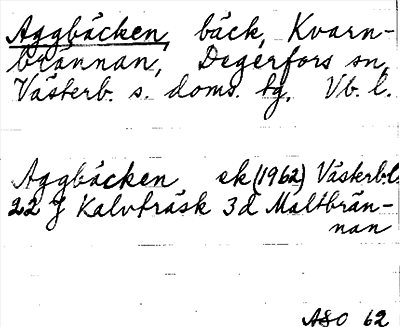 Aggbäcken, bäck, Kvarn-
brännan, Degerfors sn,
Västerb. s. doms. tg. Vb. l.
Aggbäcken ek (1962) Västerbl.
22 J Kalvträsk 3d Maltbrän-
nan
ASO 62